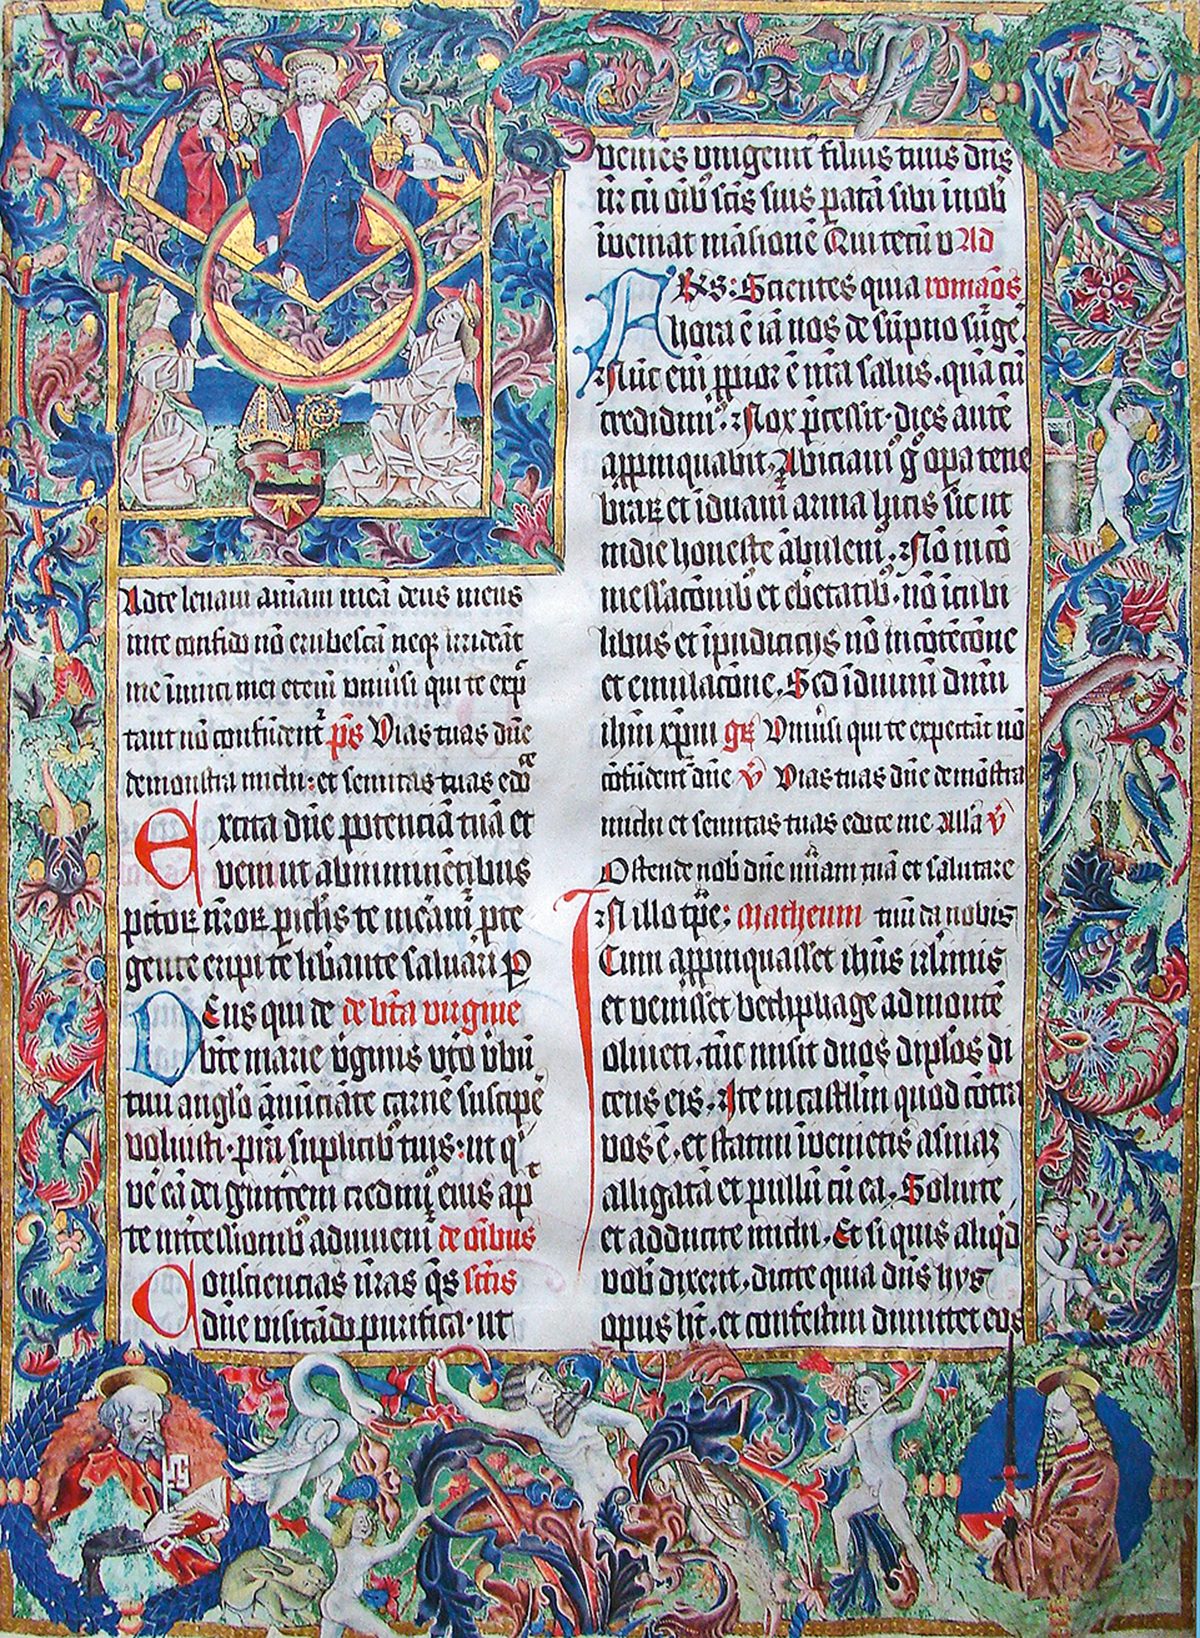 Adte leuaui aīam meā deus meus
inte confido nō erubescā neqꝫ irrideāt
me inimici mei etenī vniuˢsi qui te exp̄
tant nō confūdentʳ p̄s Vias tuas dn̄e
demonstra michi: et semitas tuas edo᷒ce
Excita dn̄e potenciā tuā et
veni ut ab iminnētibus
pctōꝝ nr̄oꝝ picl̄is te meam᷒ ꝑte
gente eripi te libāute saluari P
Deus qui de de bt̄a virgine
bt̄e marie v̄ginis vt̄o v̄bū
tuū angl̓o an̄nūciāte carnē suscipe᷒
voluisti · pr̄a suplicib᷒ tuis: ut q͛
ve᷒ eā dei genitricem credim᷒ eius apᵗ
te int̓cessionib᷒ adiuuem᷒ de oīb᷒us
Consciencias nr̄as q̄s sc̄tis
dn̄e visitādo purifica · ut
veniēs vnigenit᷒ filius tuus dn̄s
nr̄ cū oīb᷒ sc̄tis suis ꝑatā sibi i nob᷒
īveniat māsionē Qui tecū v Ad
Fr̄es: Scientes quia romāos
hora ē iā nos de sōpno surge᷒
Nūc eni ꝓpior ē nr̄a salus. quā cū
credidim᷒. Nox p̄cessit · dies autē
appinquabit. Abiciam᷒ g̊ opa tene
braꝝ et īduam᷒ arma lucis sic ut
in die honeste ābulem᷒. Nō in cō
messac̄oib᷒ et eb̓etatib᷒. nō ī cubi
libus et īpudicicijs nō in cōtēc̄one
et emulac̄one. Sed īduimi dn̄m
ihm̄ xp̄m gr̄ Vniuˢsi qui te expectāt nō
cōfūdentʳ dn̄e v̄ Vias tuas dn̄e demōstra
michi et semitas tuas edoce me Alla v̄
Ostende nob᷒ dn̄e mīam tuā et salutare
IN illo tp̄e: Matheum tuū da nobis
Cum appinquasset ihūs irl̄imis
et venisset bethphage ad montē
oliueti. tūc misit duos disiplos di
cens eis. Ite in castellū quod cōtra
vos ē. et statim īvenietis asinaꝫ
alligatā et pullū cū ea. Soluite
et adducite michi. Et si quis aliq̄d
vob᷒ dixerit. dicite quia dn̄s hijs
opus hꝫ. et confestim dimittet eos